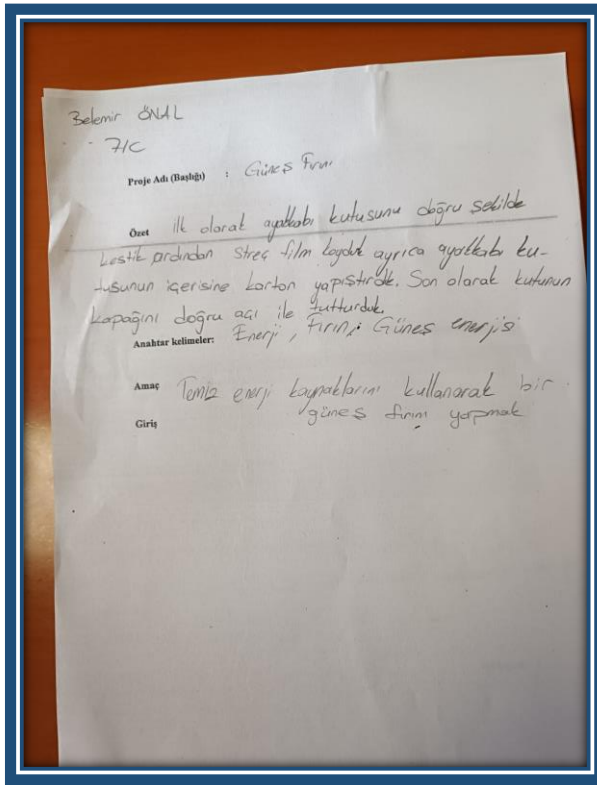 Belemir ÖNAL
7/C
Proje Adı (Başlığı) : Güneş Fırını
Özet ilk olarak ayakkabı kutusunu doğru şekilde
kestik ardından streç film koyduk ayrıca ayakkabı ku-
tusunun içerisine karton yapıştırdık. Son olarak kutunun
kapağını doğru açı ile tutturduk.
Anahtar kelimeler: Enerji, Fırın, Güneş enerjisi
Amaç Temiz enerji kaynaklarını kullanarak bir
güneş fırını yapmak
Giriş